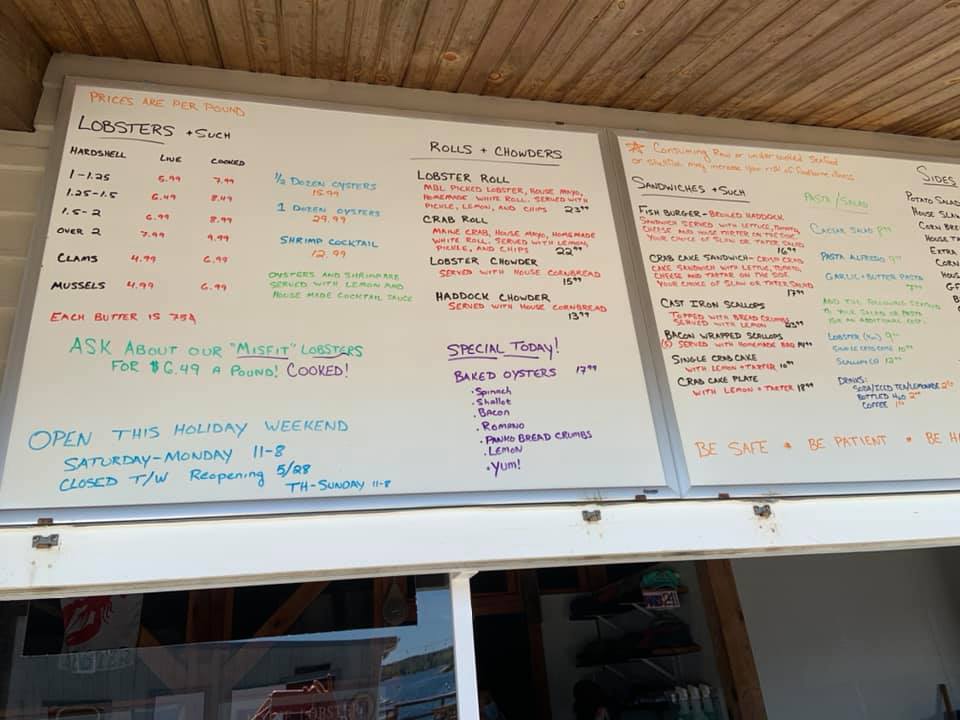 PRICES ARE PER POUND
LOBSTERS + SUCH
HARDSHELL LIVE COOKED
1-1.25 5.99 7.99
1.25-1.5 6.49 8.49
1.5-2 6.99 8.99
OVER 2 7.99 9.99
CLAMS 4.99 6.99
MUSSELS 4.99 6.99
EACH BUTTER IS 75¢
1/2 DOZEN OYSTERS
15.99
1 DOZEN OYSTERS
29.99
SHRIMP COCKTAIL
12.99
OYSTERS AND SHRIMP ARE
SERVED WITH LEMON AND
HOUSE MADE COCKTAIL SAUCE
ASK ABOUT OUR "MISFIT" LOBSTERS
FOR $6.49 A POUND! COOKED!
OPEN THIS HOLIDAY WEEKEND
SATURDAY-MONDAY 11-8
CLOSED T/W Reopening 5/28
TH-SUNDAY 11-8
ROLLS + CHOWDERS
LOBSTER ROLL
MBL PICKED LOBSTER, HOUSE MAYO,
HOMEMADE WHITE ROLL. SERVED WITH
PICKLE, LEMON, AND CHIPS 23.99
CRAB ROLL
MAINE CRAB, HOUSE MAYO, HOMEMADE
WHITE ROLL. SERVED WITH LEMON,
PICKLE, AND CHIPS 22.99
LOBSTER CHOWDER
SERVED WITH HOUSE CORNBREAD
15.99
HADDOCK CHOWDER
SERVED WITH HOUSE CORNBREAD
13.99
SPECIAL TODAY!
BAKED OYSTERS 17.99
• Spinach
• Shallot
• Bacon
• Romano
• PANKO BREAD CRUMBS
• LEMON
• YUM!
Consuming Raw or undercooked seafood
or shellfish may increase your risk of foodborne illness
SANDWICHES + SUCH
FISH BURGER - BROILED HADDOCK
SANDWICH SERVED WITH LETTUCE, TOMATO,
CHEESE AND HOUSE TARTER ON THE SIDE
YOUR CHOICE OF SLAW OR TATER SALAD
16.99
CRAB CAKE SANDWICH - CRISP CRAB
CAKE SANDWICH WITH LETTUCE, TOMATO,
CHEESE AND TARTAR ON THE SIDE
YOUR CHOICE OF SLAW OR TATER SALAD
17.99
CAST IRON SCALLOPS
TOPPED WITH BREAD CRUMBS
SERVED WITH LEMON 23.99
BACON WRAPPED SCALLOPS
(5) SERVED WITH HOMEMADE BBQ 14.99
SINGLE CRAB CAKE
WITH LEMON + TARTER 10.99
CRAB CAKE PLATE
WITH LEMON + TARTER 18.99
PASTA/SALAD
CAESAR SALAD 8.99
PASTA ALFREDO 9.99
GARLIC + BUTTER PASTA
7.99
ADD THE FOLLOWING
TO YOUR SALAD OR PASTA
FOR AN ADDITIONAL COST.
LOBSTER 9.99
SINGLE CRAB CAKE 10.99
SCALLOPS 12.99
DRINKS:
SODA/ICED TEA/LEMONADE
BOTTLED H2O
COFFEE
SIDES
POTATO SALAD
HOUSE SLAW
CORN BRE
HOUSE TA
EXTRA
CORN
HOUS
GF
BE SAFE * BE PATIENT * BE HA